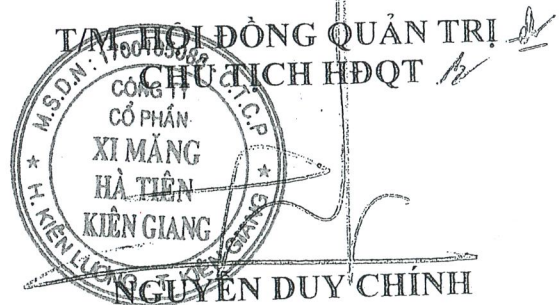 T/M. HỘI ĐỒNG QUẢN TRỊ
CHỦ TỊCH HĐQT
CÔNG TY
CỔ PHẦN
XI MĂNG
HÀ TIÊN
KIÊN GIANG
H. KIÊN LƯƠNG - T. KIÊN GIANG
NGUYỄN DUY CHÍNH